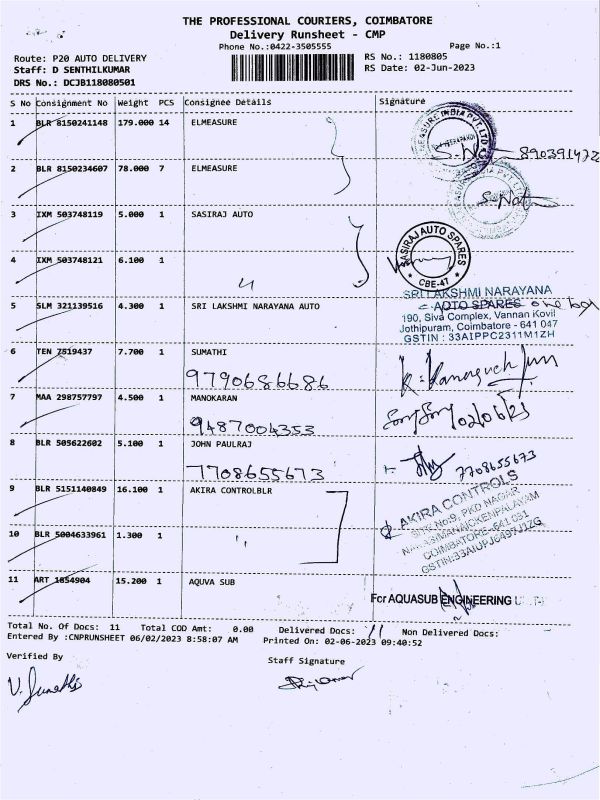 THE PROFESSIONAL COURIERS, COIMBATORE
Delivery Runsheet - CMP
Phone No.:0422-3505555
Page No.:1
Route: P20 AUTO DELIVERY
RS No.: 1180805
Staff: D SENTHILKUMAR
RS Date: 02-Jun-2023
DRS No.: DCJB118080501
S No Consignment No Weight PCS Consignee Details Signature
1 BLR 8150241148 179.000 14 ELMEASURE
S-Nat 890391472
2 BLR 8150234607 78.000 7 ELMEASURE
S-Nat
3 IXM 503748119 5.000 1 SASIRAJ AUTO
SASIRAJ AUTO SPARES
CBE-47
4 IXM 503748121 6.100 1
5 SLM 321139516 4.300 1 SRI LAKSHMI NARAYANA AUTO
SRI LAKSHMI NARAYANA
AUTO SPARES one box
190, Siva Complex, Vannan Kovil
Jothipuram, Coimbatore - 641 047
GSTIN : 33AIPPC2311M1ZH
6 TEN 7519437 7.700 1 SUMATHI
9790686686
7 MAA 298757797 4.500 1 MANOKARAN
9487004353
02/06/23
8 BLR 505622602 5.100 1 JOHN PAULRAJ
7708655673
7708655673
9 BLR 5151140849 16.100 1 AKIRA CONTROLBLR
AKIRA CONTROLS
SITE No:9, PKD NAGAR
COIMBATORE-641 031
10 BLR 5004633961 1.300 1
11 ART 1854904 15.200 1 AQUVA SUB
For AQUASUB ENGINEERING
Total No. Of Docs: 11 Total COD Amt: 0.00 Delivered Docs: 11 Non Delivered Docs:
Entered By :CNPRUNSHEET 06/02/2023 8:58:07 AM Printed On: 02-06-2023 09:40:52
Verified By
Staff Signature
V. Sumathi